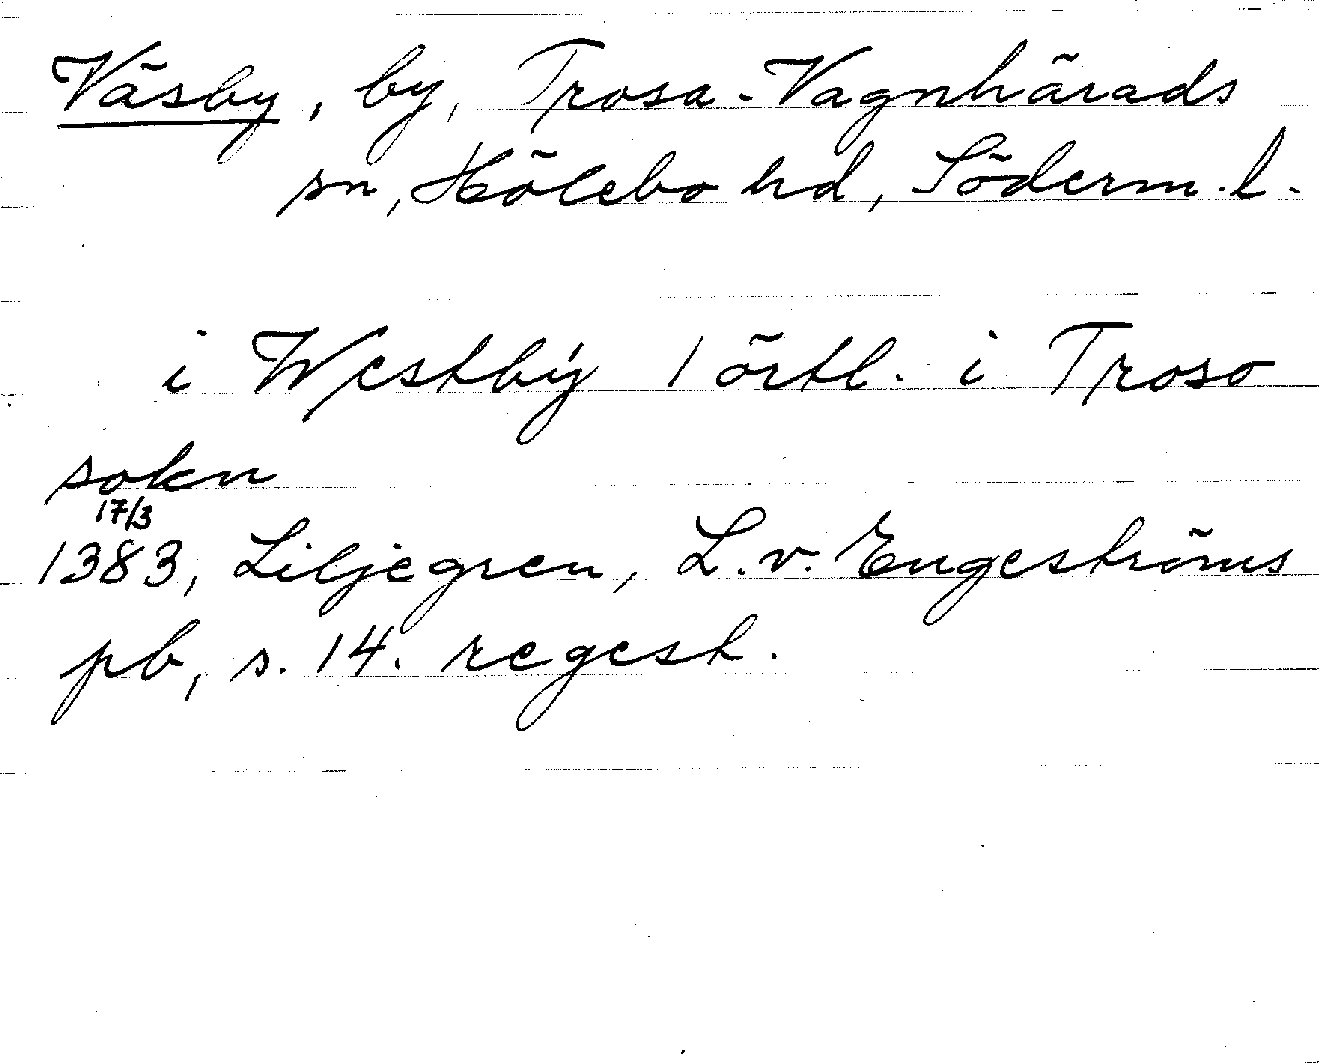 Väsby, by, Trosa-Vagnhärads
sn, Hölebo hd, Söderm.l.
i Westbÿ 1 örtl. i Troso
sokn
17/3
1383, Liljegren, L.v. Engeströms
pb, s. 14. regest.